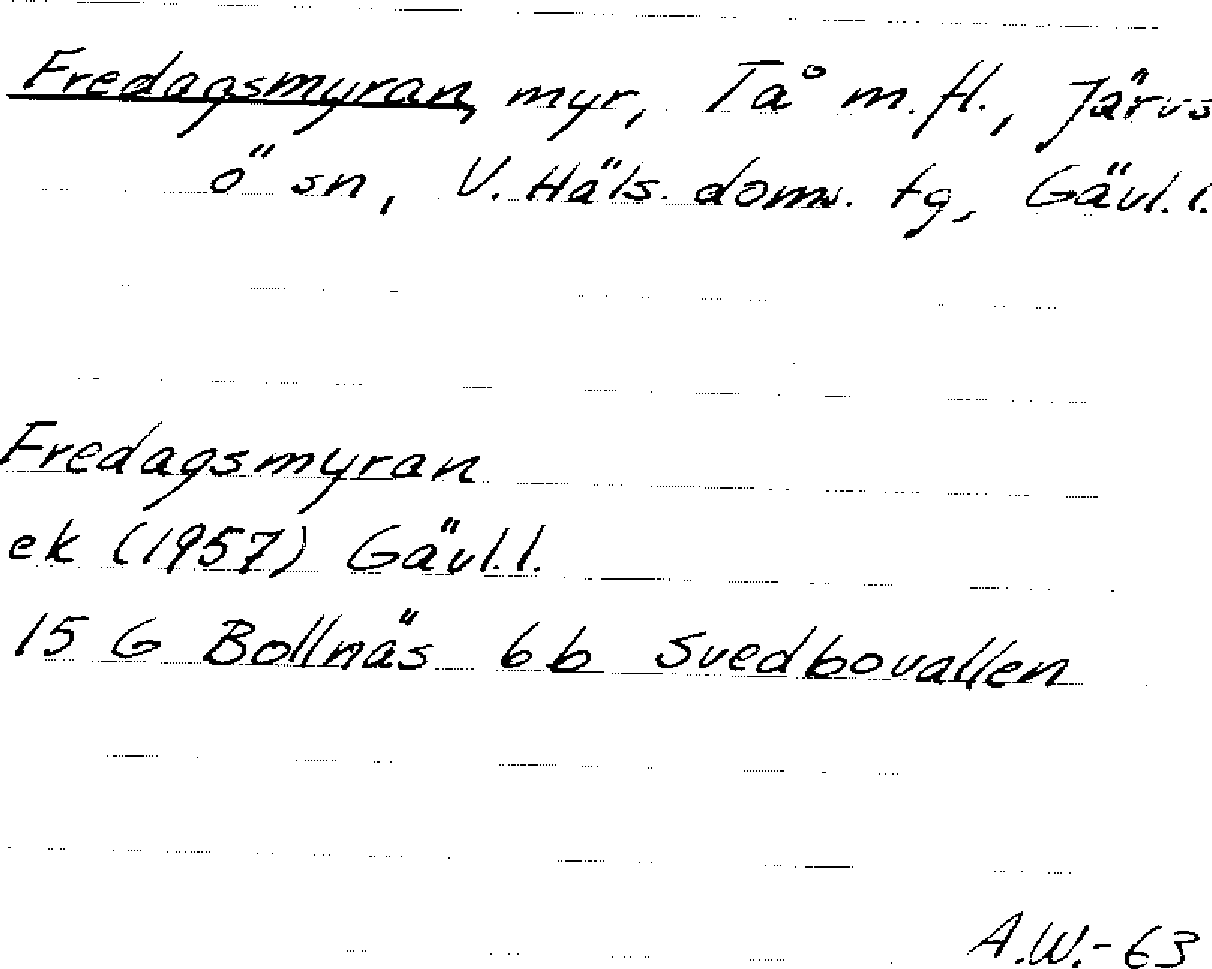 Fredagsmyran, myr, Tå m.fl., Järvs
ö sn, V. Häls. doms. tg, Gävl.l.
Fredagsmyran
ek (1957) Gävl.l.
15 G Bollnäs 6b Svedbovallen
A.W.-63